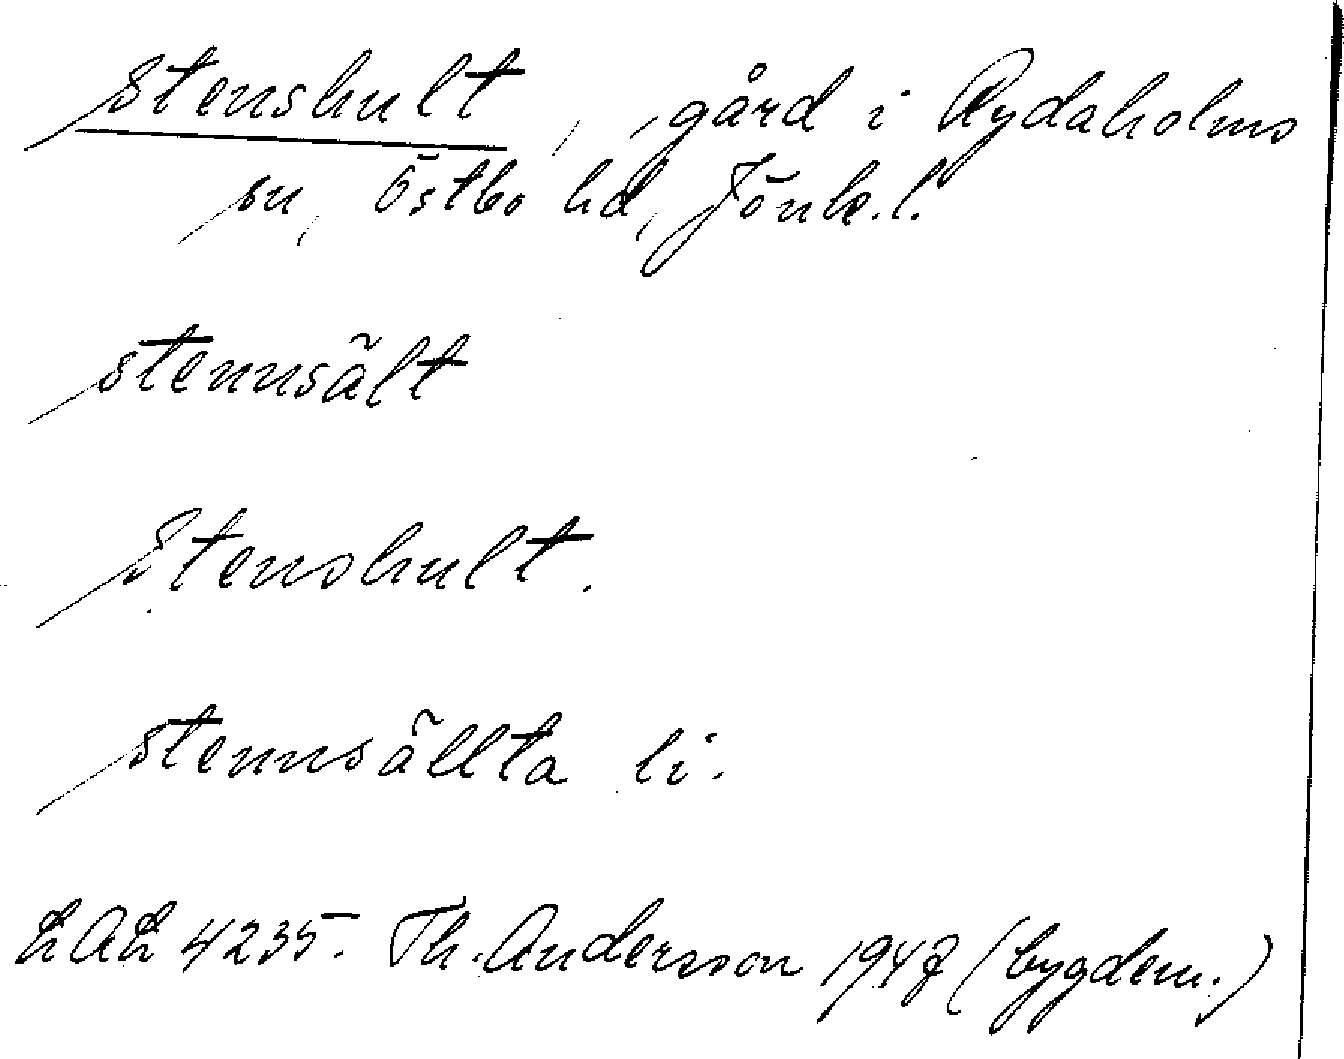 Stenshult, gård i Rydaholms
sn, Östbo hd, Jönk.l.
stennsält
Stenshult.
stennsällta li.
LAL 4235. Th. Andersson 1947 (bygdem.)